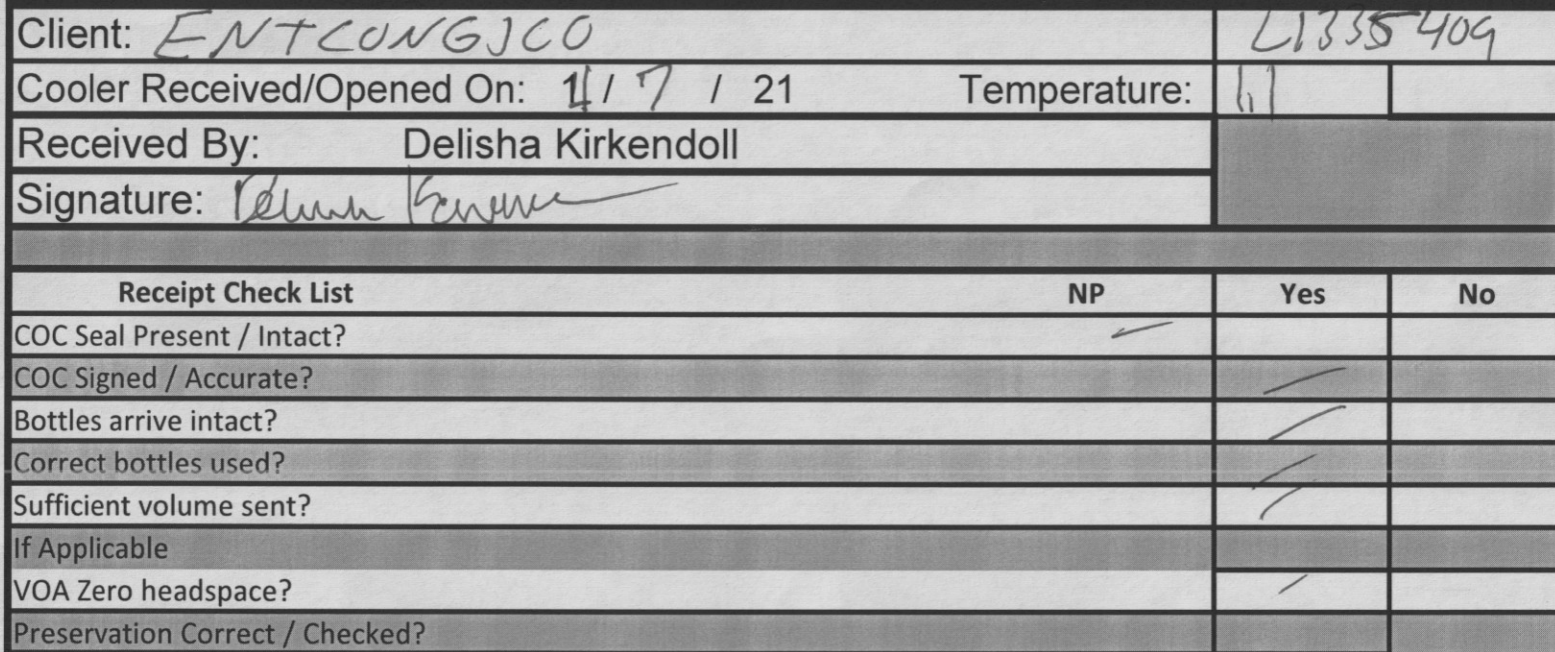 Client: ENTCONGJCO L1335409
Cooler Received/Opened On: 4/ 7 / 21 Temperature: 1.1
Received By: Delisha Kirkendoll
Signature:
Receipt Check List NP Yes No
COC Seal Present / Intact?
COC Signed / Accurate?
Bottles arrive intact?
Correct bottles used?
Sufficient volume sent?
If Applicable
VOA Zero headspace?
Preservation Correct / Checked?